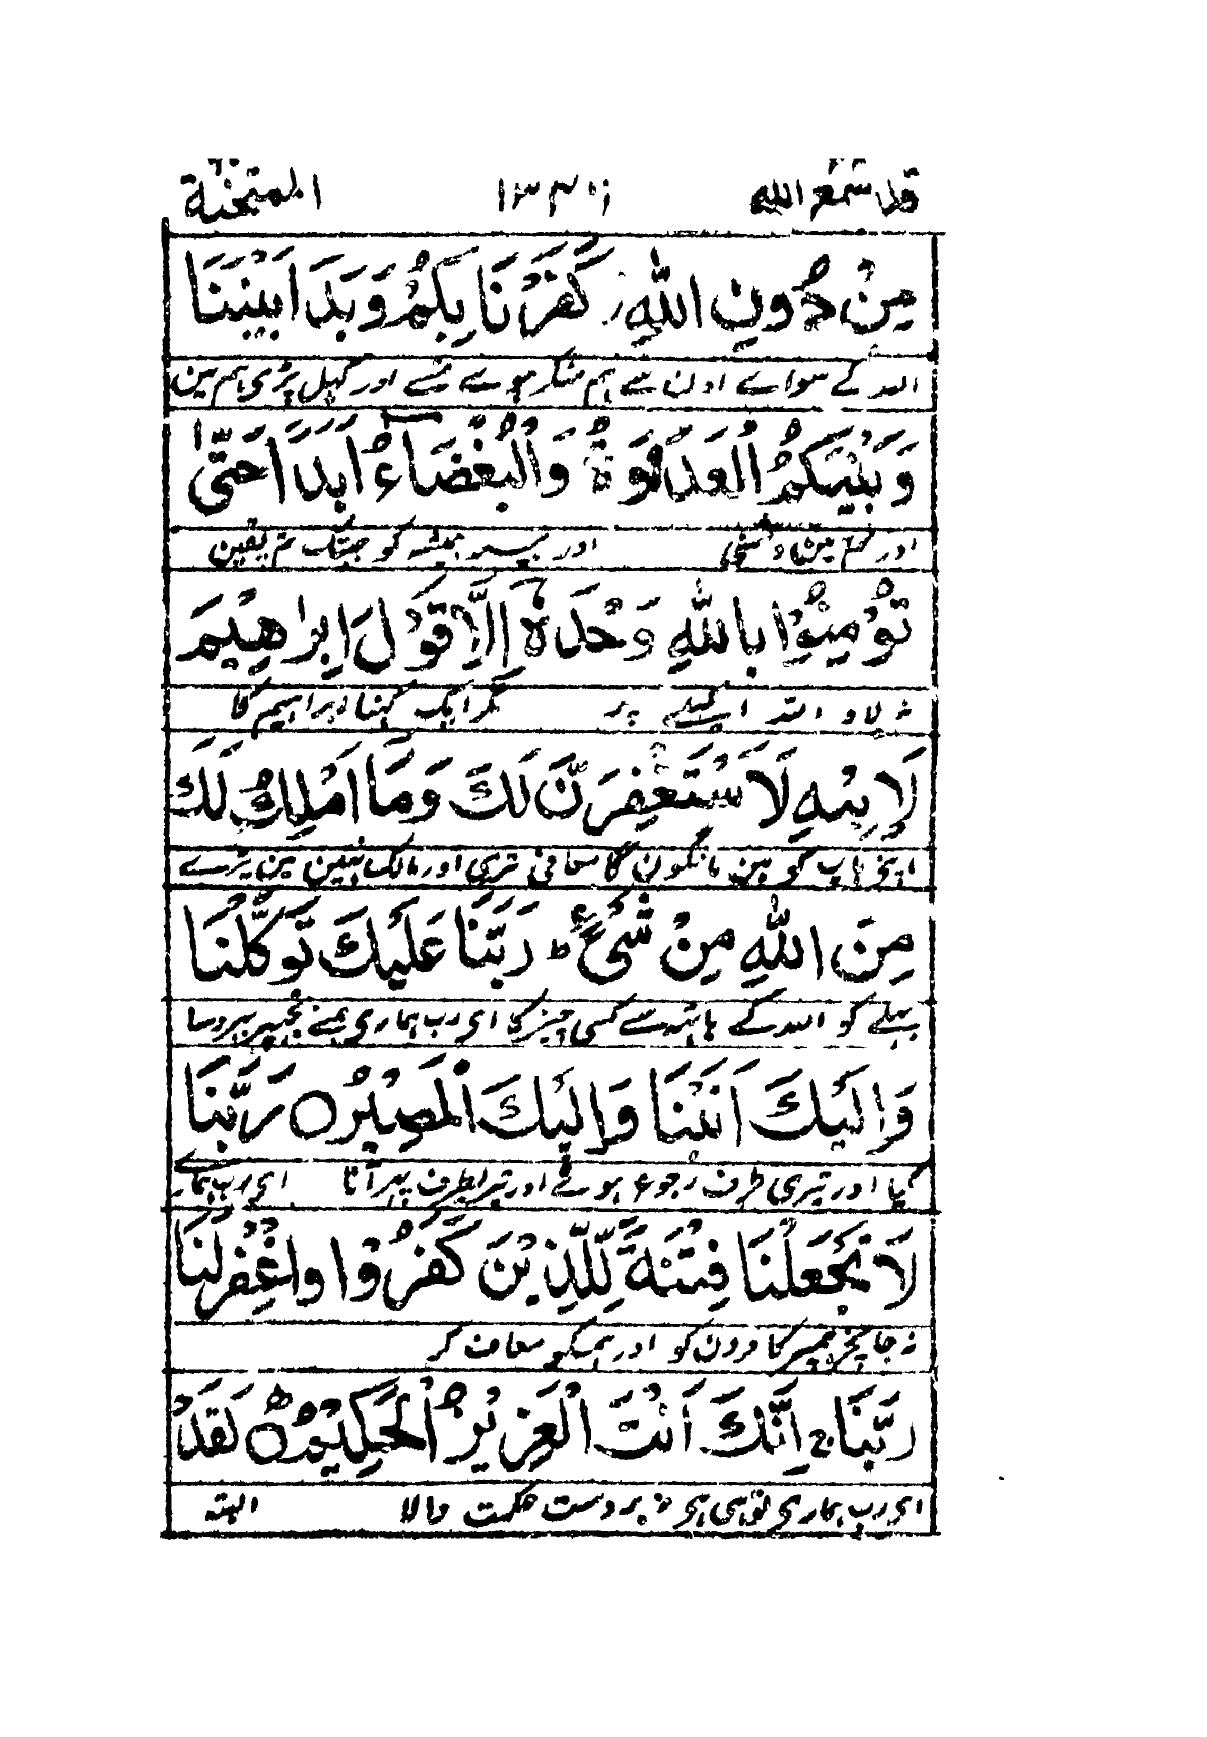 قد سمع الله ١٣٣١ الممتحنة
مِنْ دُوْنِ اللّٰهِ كَفَرْنَا بِكُمْ وَبَدَا بَيْنَنَا
اللہ کے سواے اون سے ہم منکر ہوے تمسے اور کہل پڑی ہم مین
وَبَيْنَكُمُ الْعَدَاوَةُ وَالْبَغْضَآءُ اَبَدًا حَتّٰى
اور تم مین دشمنی اور بیر ہمیشہ کو جبتک تم یقین
تُؤْمِنُوْا بِاللّٰهِ وَحْدَهٗٓ اِلَّا قَوْلَ اِبْرَاهِيْمَ
نہ لاو اللہ اکیلے پر مگر ایک کہنا ابراہیم کا
لِاَبِيْهِ لَاَسْتَغْفِرَنَّ لَكَ وَمَا اَمْلِكُ لَكَ
اپنے باپ کو مین مانگون گا معافی تری اور مالک نہین مین تیرے
مِنَ اللّٰهِ مِنْ شَيْءٍ ط رَبَّنَا عَلَيْكَ تَوَكَّلْنَا
بہلے کو اللہ کے ہاتہ سے کسی چیز کا ای رب ہماری ہمنے تجہپر بہروسا
وَاِلَيْكَ اَنَبْنَا وَاِلَيْكَ الْمَصِيْرُ ○ رَبَّنَا
کیا اور تیری طرف رجوع ہوئے اور تیریطرف پہر آنا ای رب ہمارے
لَا تَجْعَلْنَا فِتْنَةً لِّلَّذِيْنَ كَفَرُوْا وَاغْفِرْ لَنَا
نہ جانچ ہمپر کافرون کو اور ہمکو معاف کر
رَبَّنَا ج اِنَّكَ اَنْتَ الْعَزِيْزُ الْحَكِيْمُ ○ لَقَدْ
ای رب ہماری توہی ہی زبردست حکمت والا البتہ